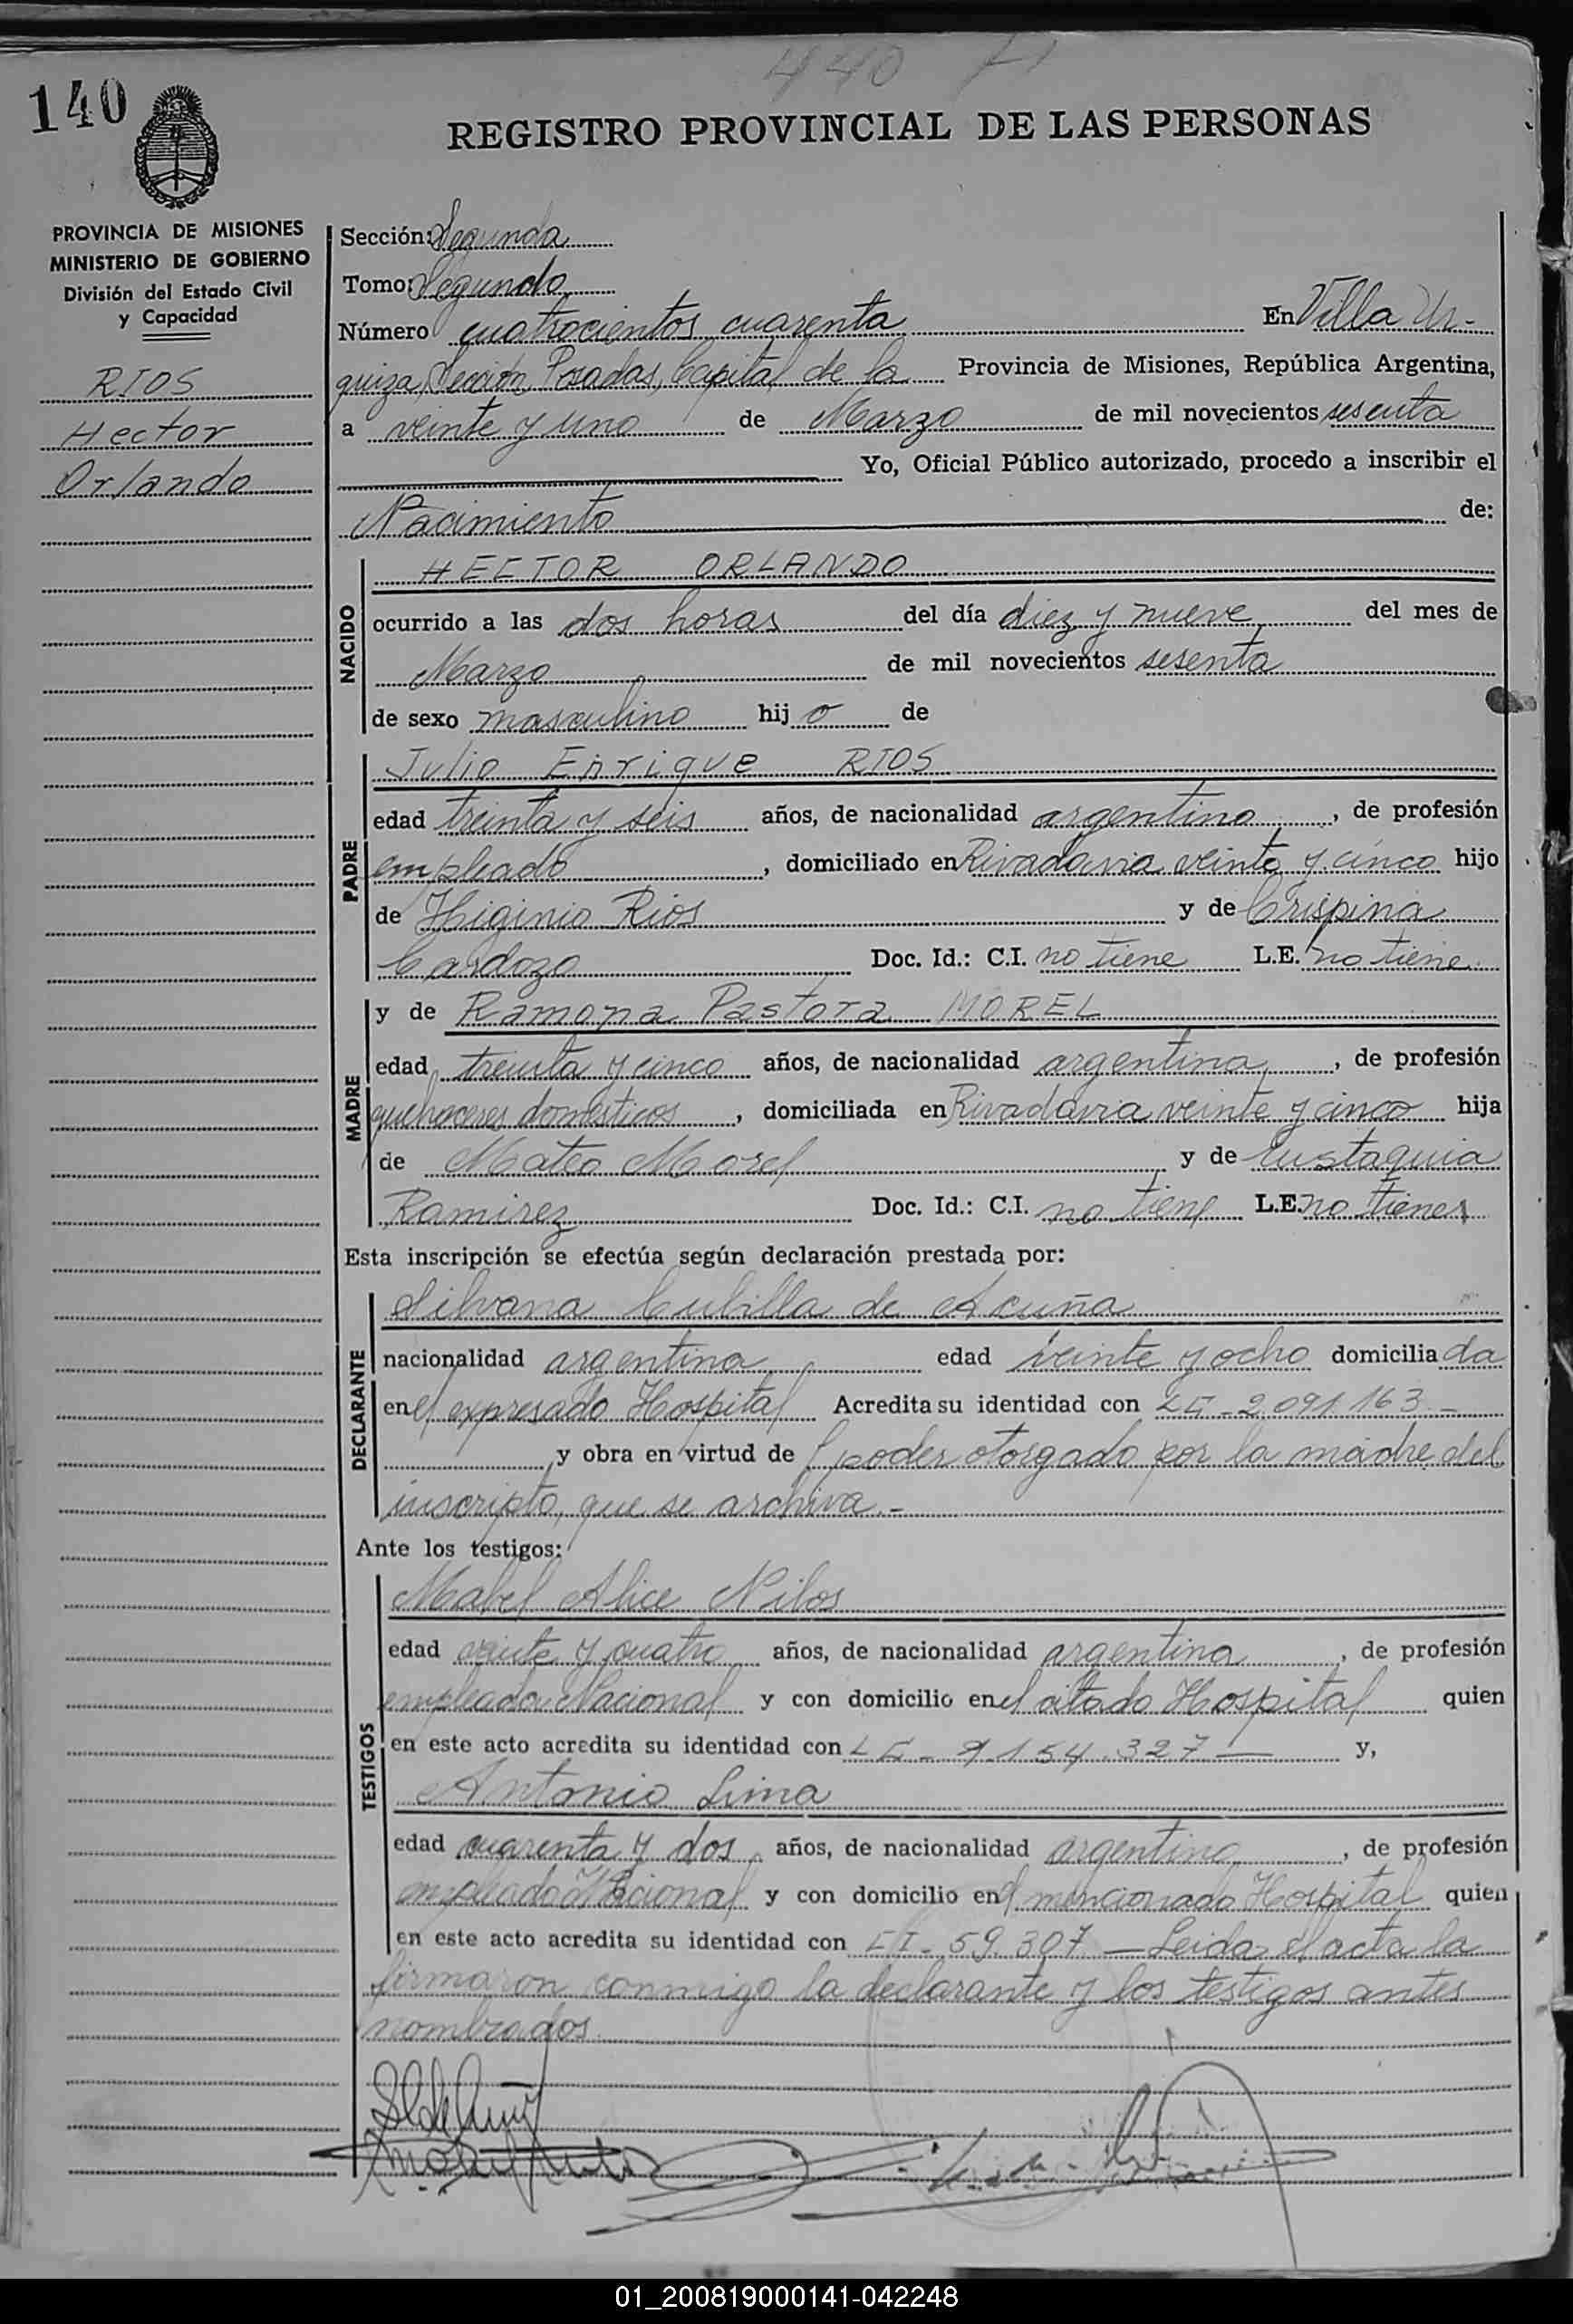 440
140
REGISTRO PROVINCIAL DE LAS PERSONAS
PROVINCIA DE MISIONES
MINISTERIO DE GOBIERNO
División del Estado Civil
y Capacidad
RIOS
Hector
Orlando
Sección: Segunda
Tomo: Segundo
Número cuatrocientos cuarenta En Villa Ur-
quiza, Sección Posadas, Capital de la Provincia de Misiones, República Argentina,
a veinte y uno de Marzo de mil novecientos sesenta
Yo, Oficial Público autorizado, procedo a inscribir el
Nacimiento de:
NACIDO
HECTOR ORLANDO
ocurrido a las dos horas del día diez y nueve del mes de
Marzo de mil novecientos sesenta
de sexo masculino hijo de
PADRE
Julio Enrique RIOS
edad treinta y seis años, de nacionalidad argentino, de profesión
empleado, domiciliado en Rivadavia veinte y cinco hijo
de Higinio Rios y de Crispina
Cardozo Doc. Id.: C.I. no tiene L.E. no tiene
MADRE
y de Ramona Pastora MOREL
edad treinta y cinco años, de nacionalidad argentina, de profesión
quehaceres domésticos, domiciliada en Rivadavia veinte y cinco hija
de Mateo Morel y de Eustaquia
Ramirez Doc. Id.: C.I. no tiene L.E. no tiene
Esta inscripción se efectúa según declaración prestada por:
DECLARANTE
Silvana Cubilla de Acuña
nacionalidad argentina edad veinte y ocho domiciliada
en el expresado Hospital Acredita su identidad con 2.091.163.-
y obra en virtud de poder otorgado por la madre del
inscripto, que se archiva.-
Ante los testigos:
TESTIGOS
Mabel Alice Nilos
edad veinte y cuatro años, de nacionalidad argentina, de profesión
empleada Nacional y con domicilio en el citado Hospital quien
en este acto acredita su identidad con 9.154.327 — y,
Antonio Lima
edad cuarenta y dos años, de nacionalidad argentino, de profesión
empleado Nacional y con domicilio en el mencionado Hospital quien
en este acto acredita su identidad con CI- 59.307 — Leida el acta la
firmaron conmigo la declarante y los testigos antes
nombrados.
01_200819000141-042248